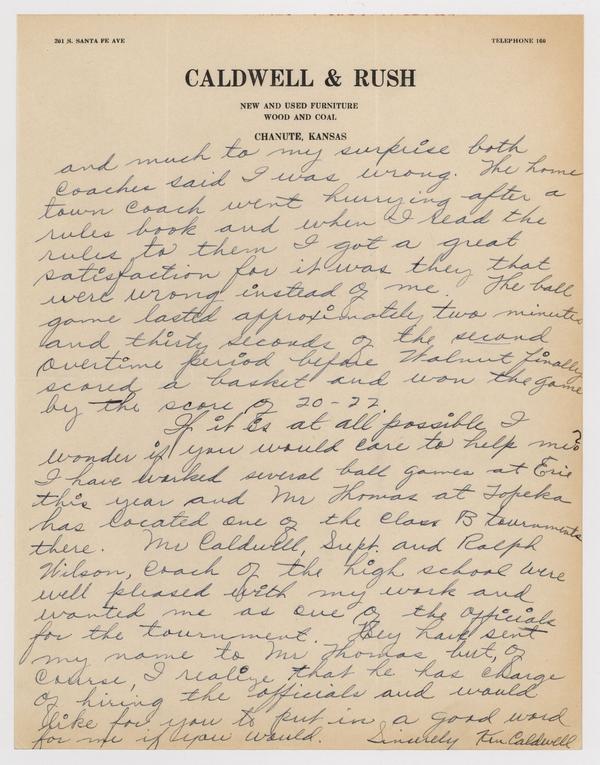 201 S. SANTA FE AVE
TELEPHONE 160
CALDWELL & RUSH
NEW AND USED FURNITURE
WOOD AND COAL
CHANUTE, KANSAS
and much to my surprise both
coaches said I was wrong. The home
town coach went hurrying after a
rules book and when I read the
rules to them I got a great
satisfaction for it was they that
were wrong instead of me. The ball
game lasted approximately two minutes
and thirty seconds of the second
overtime period before Walnut finally
scored a basket and won the game
by the score of 20-22
If it is at all possible, I
wonder if you would care to help me?
I have worked several ball games at Erie
this year and Mr Thomas at Topeka
has located one of the class B tournments
there. Mr Caldwell, Supt. and Ralph
Wilson, coach of the high school were
well pleased with my work and
wanted me as one of the officials
for the tournment. They have sent
my name to Mr Thomas but, of
course, I realize that he has charge
of hiring the officials and would
like for you to put in a good word
for me if you would. Sincerely Ken Caldwell